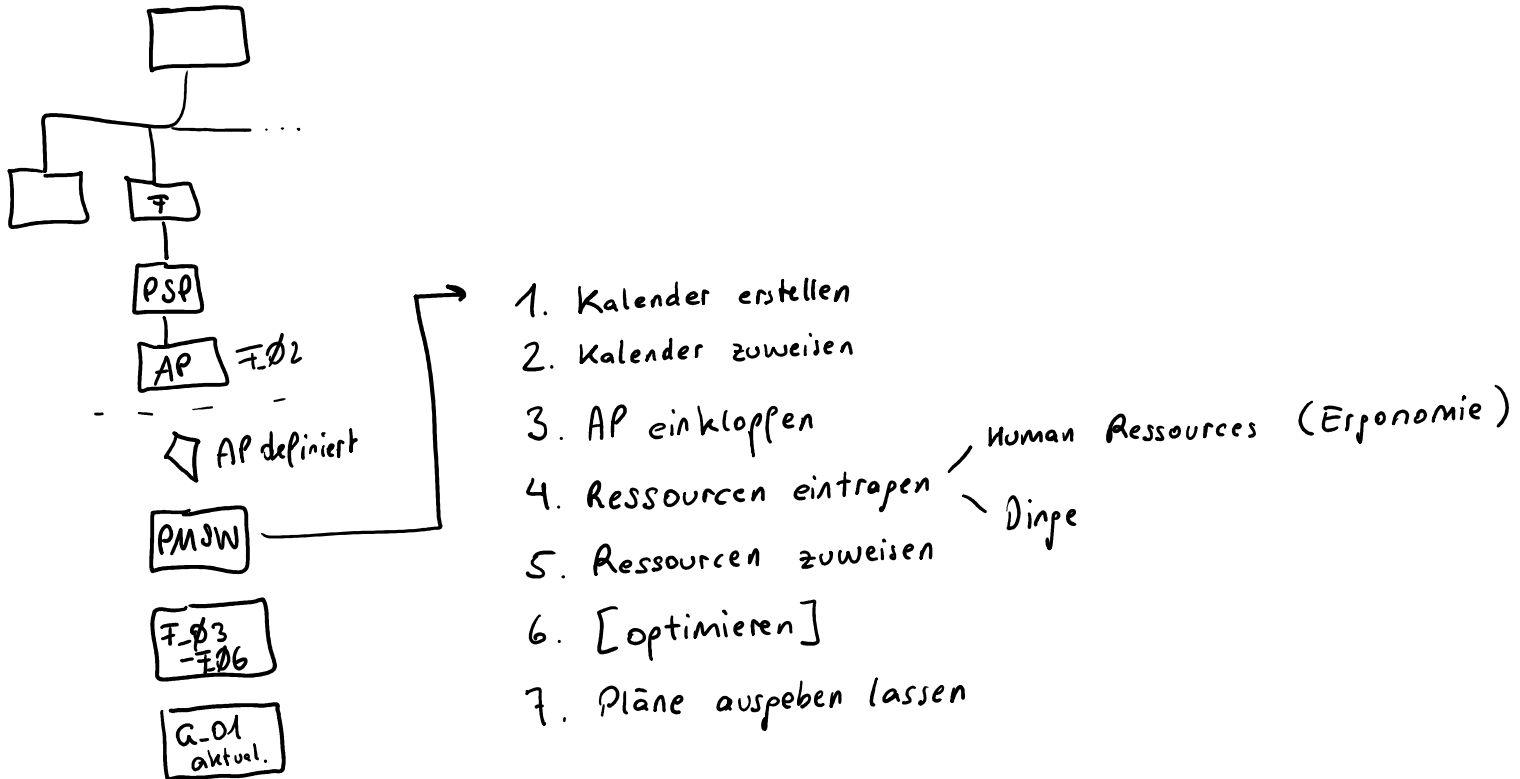 ...
F
PSP
AP F_Ø2
AP definiert
PMSW
F_Ø3
-F_Ø6
G_01
aktual.
1. Kalender erstellen
2. Kalender zuweisen
3. AP einkloppen
4. Ressourcen eintragen
Human Ressources (Ergonomie)
Dinge
5. Ressourcen zuweisen
6. [optimieren]
7. Pläne ausgeben lassen